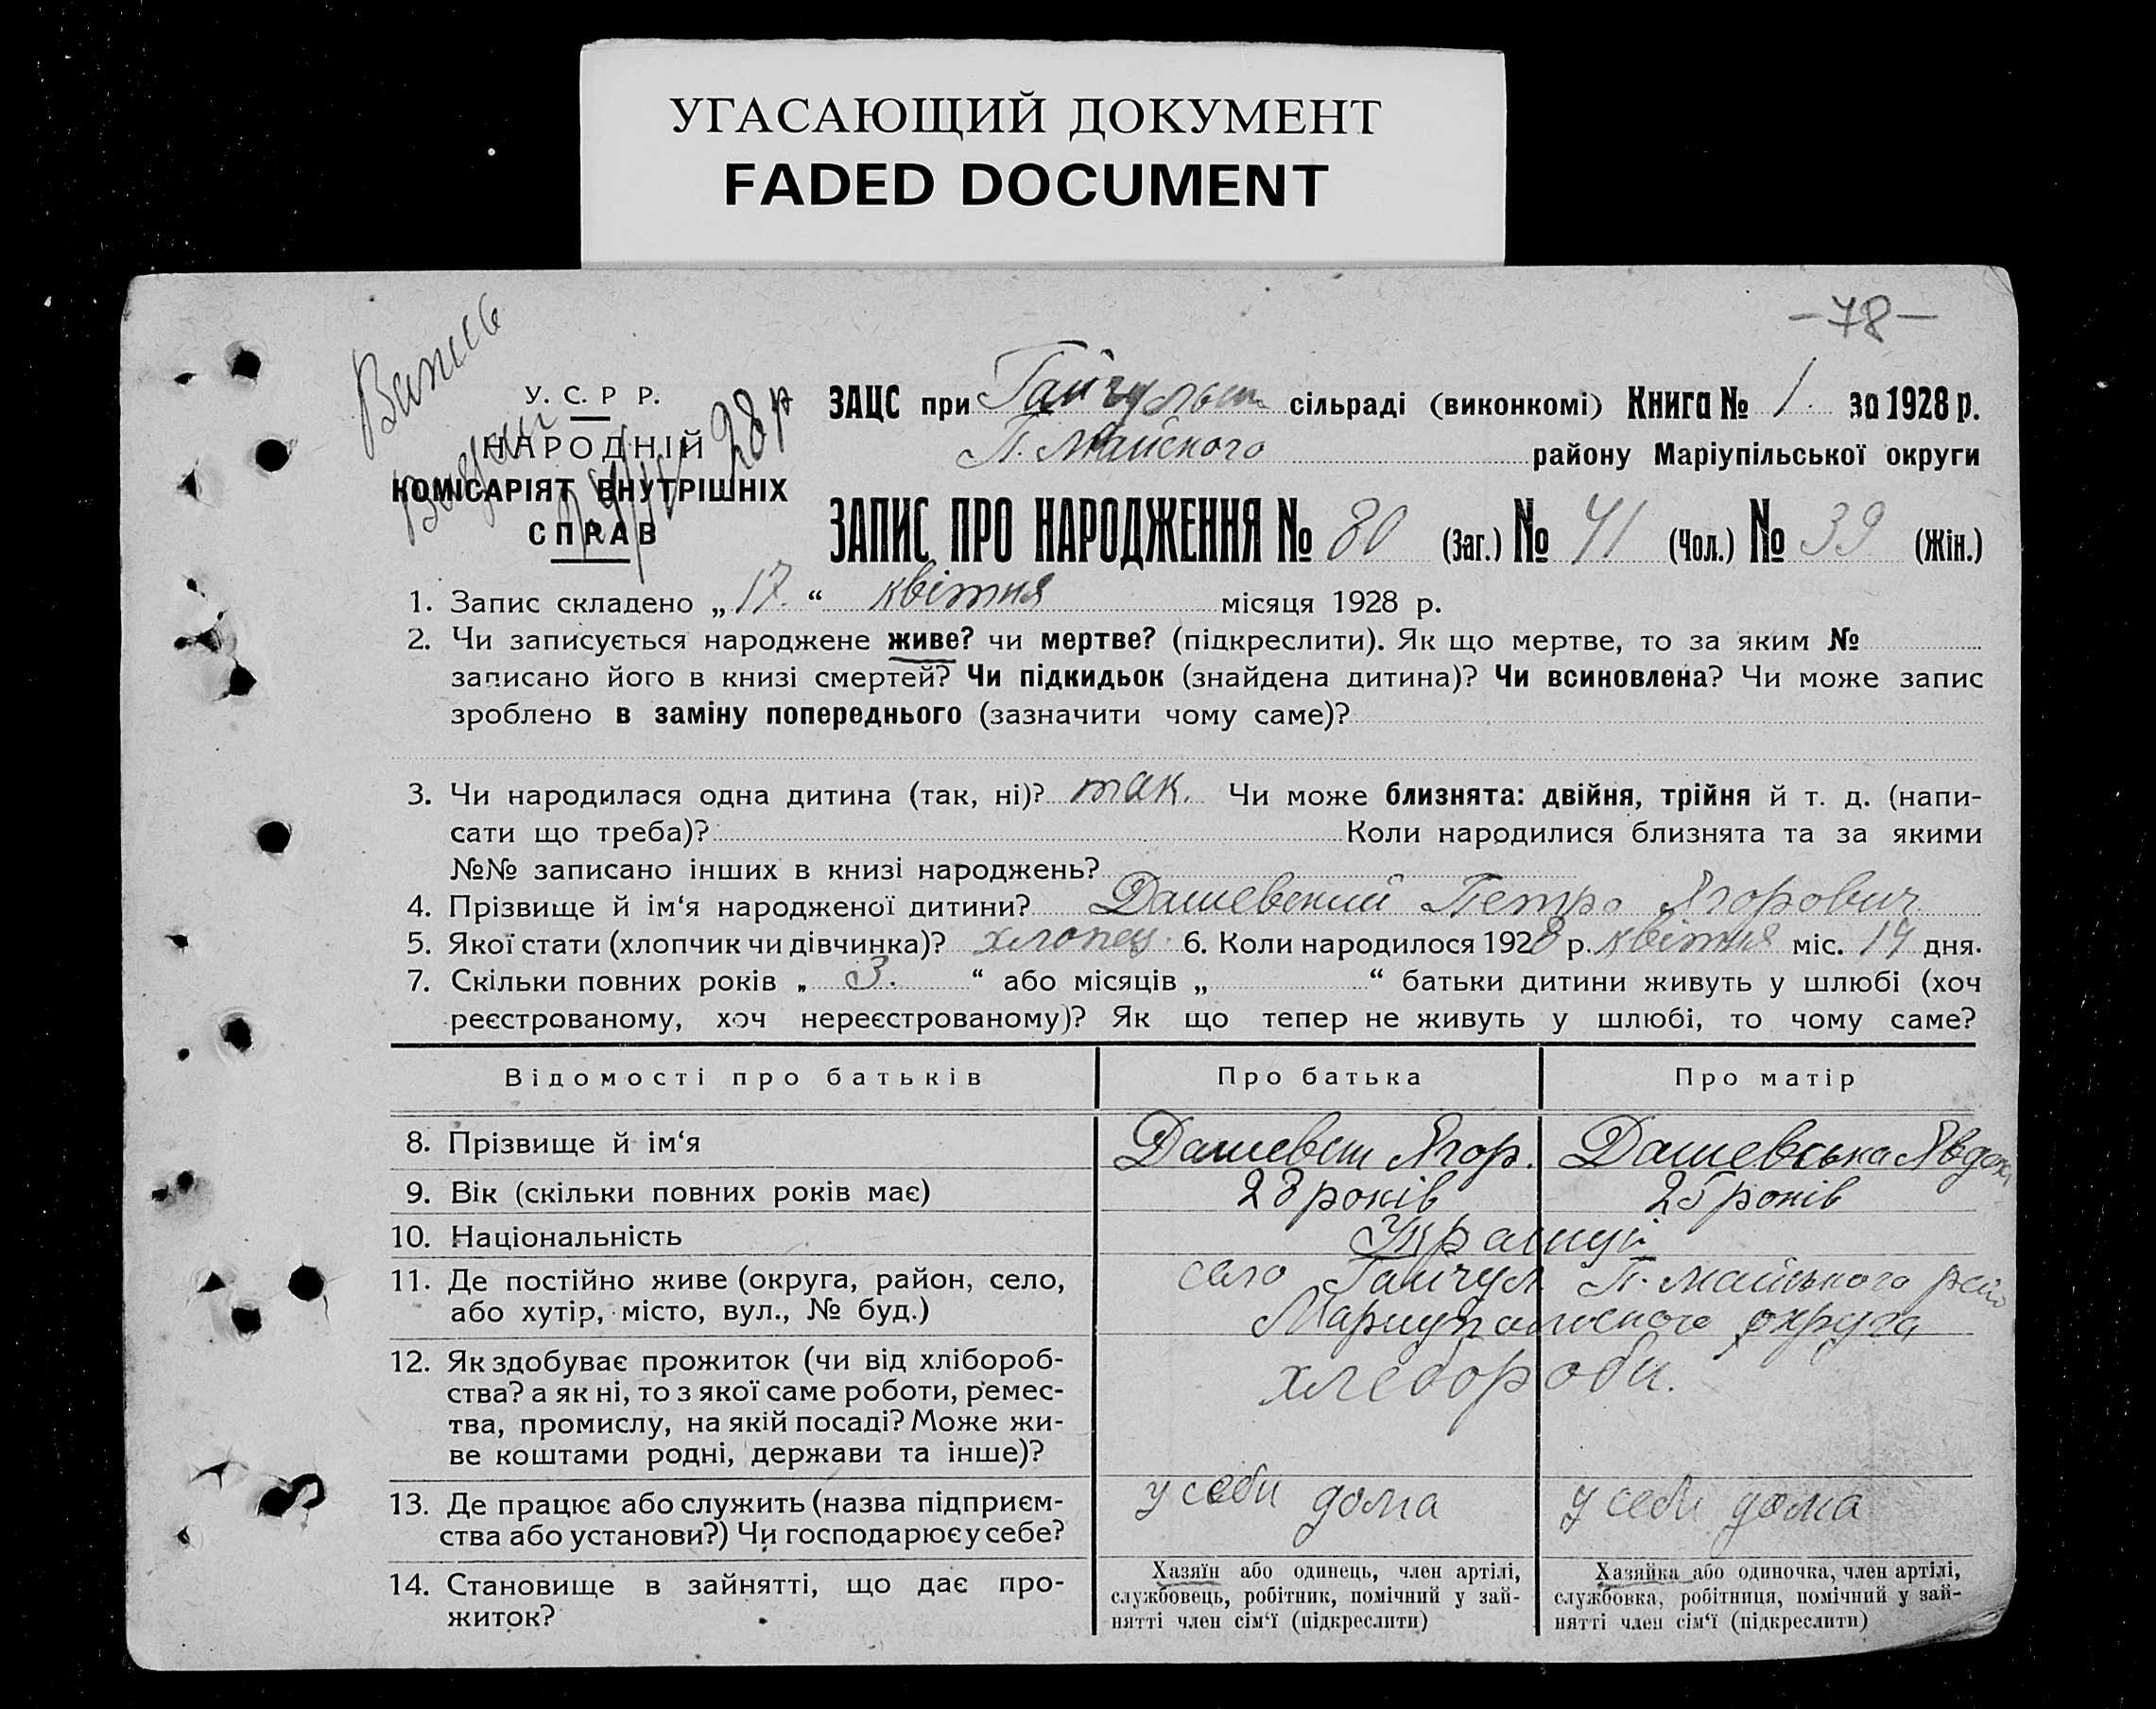 УГАСАЮЩИЙ ДОКУМЕНТ
FADED DOCUMENT
–78–
Випись
У. С. Р Р.
НАРОДНІЙ
КОМІСАРІЯТ ВНУТРІШНІХ
СПРАВ
28 р
ЗАЦС при сільраді (виконкомі) Книга № 1. за 1928 р.
П. Майского району Маріупільської округи
ЗАПИС ПРО НАРОДЖЕННЯ № 80 (Заг.) № 41 (Чол.) № 39 (Жін.)
1. Запис складено „ 17. “ квітня місяця 1928 р.
2. Чи записується народжене живе? чи мертве? (підкреслити). Як що мертве, то за яким №
записано його в книзі смертей? Чи підкидьок (знайдена дитина)? Чи всиновлена? Чи може запис
зроблено в заміну попереднього (зазначити чому саме)?
3. Чи народилася одна дитина (так, ні)? так. Чи може близнята: двійня, трійня й т. д. (напи-
сати що треба)? Коли народилися близнята та за якими
№№ записано інших в книзі народжень?
4. Прізвище й ім‘я народженої дитини? Дашевський Петро Ягорович
5. Якої стати (хлопчик чи дівчинка)? хлопец. 6. Коли народилося 1928 р. квітня міс. 14 дня.
7. Скільки повних років „ 3. “ або місяців „ “ батьки дитини живуть у шлюбі (хоч
реєстрованому, хоч нереєстрованому)? Як що тепер не живуть у шлюбі, то чому саме?
Відомості про батьків Про батька Про матір
8. Прізвище й ім‘я Ягор. Дашевська
9. Вік (скільки повних років має) 28 років 25 років
10. Національність Українці
11. Де постійно живе (округа, район, село, село Гайчул П. Майського
або хутір, місто, вул., № буд.) округа
12. Як здобуває прожиток (чи від хлібороб- хлебороби.
ства? а як ні, то з якої саме роботи, ремес-
тва, промислу, на якій посаді? Може жи-
ве коштами родні, держави та інше)?
13. Де працює або служить (назва підприєм- у себи дома у себи дома
ства або установи?) Чи господарює у себе?
14. Становище в зайнятті, що дає про-
житок?
Хазяїн або одинець, член артілі,
службовець, робітник, помічний у зай-
нятті член сім‘ї (підкреслити)
Хазяйка або одиночка, член артілі,
службовка, робітниця, помічний у зай-
нятті член сім‘ї (підкреслити)